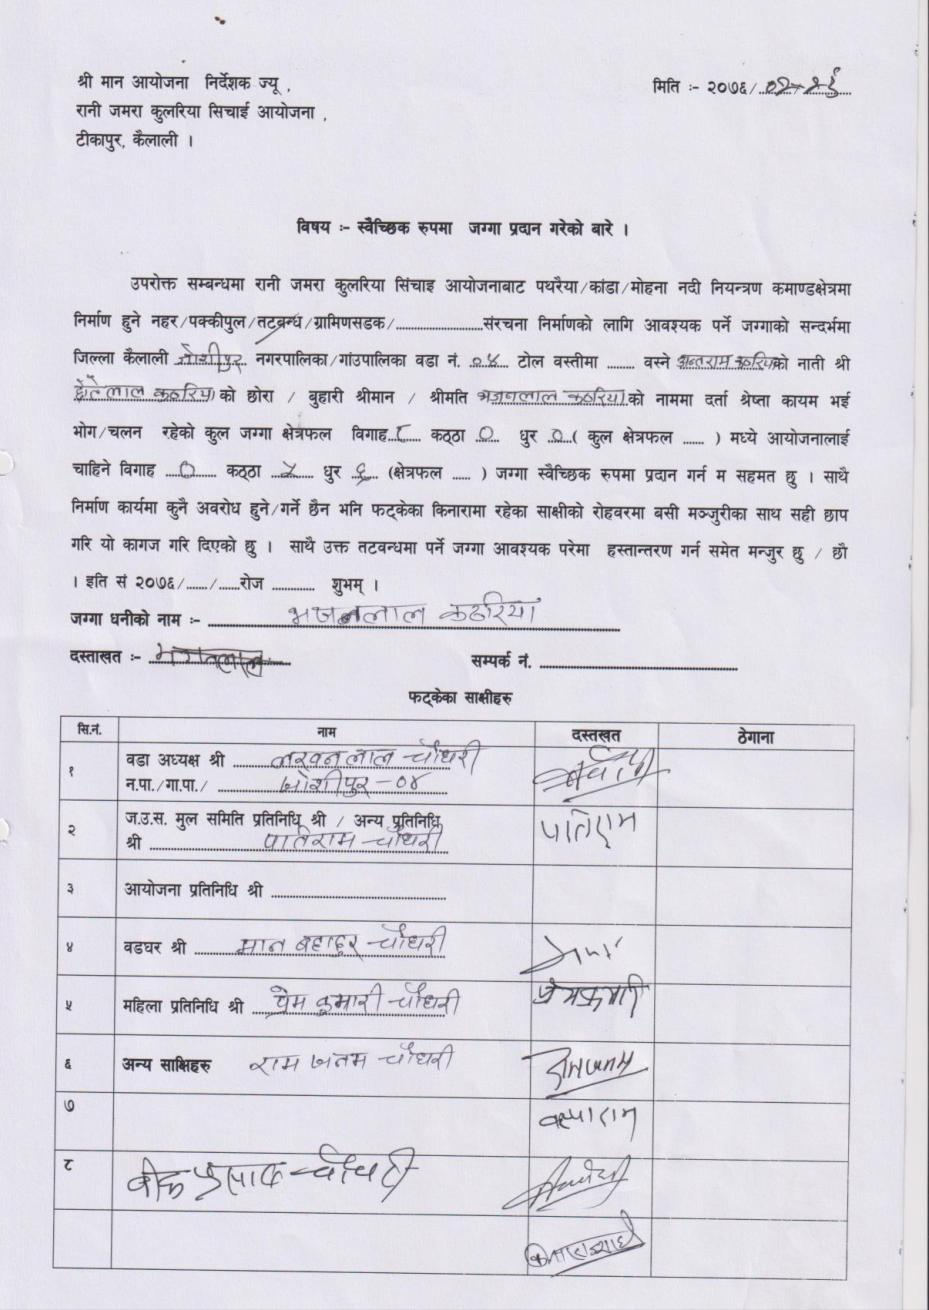 श्री मान आयोजना निर्देशक ज्यू ,
मिति :- २०७६/.०२-२६
रानी जमरा कुलरिया सिचाई आयोजना ,
टीकापुर, कैलाली ।
विषय :- स्वैच्छिक रुपमा जग्गा प्रदान गरेको बारे ।
उपरोक्त सम्बन्धमा रानी जमरा कुलरिया सिंचाइ आयोजनाबाट पथरैया/कांडा/मोहना नदी नियन्त्रण कमाण्डक्षेत्रमा
निर्माण हुने नहर/पक्कीपुल/तटबन्ध/ग्रामिणसडक/........................संरचना निर्माणको लागि आवश्यक पर्ने जग्गाको सन्दर्भमा
जिल्ला कैलाली जोशीपुर नगरपालिका/गांउपालिका वडा नं. ०४ टोल वस्तीमा ........ वस्ने अन्तराम कठरिया को नाती श्री
होतेलाल कठरिया को छोरा / बुहारी श्रीमान / श्रीमति भजनलाल कठरिया को नाममा दर्ता श्रेष्ता कायम भई
भोग/चलन रहेको कुल जग्गा क्षेत्रफल विगाह..१.. कठ्ठा ० धुर ० ( कुल क्षेत्रफल ...... ) मध्ये आयोजनालाई
चाहिने विगाह ० कठ्ठा धुर (क्षेत्रफल ..... ) जग्गा स्वैच्छिक रुपमा प्रदान गर्न म सहमत छु । साथै
निर्माण कार्यमा कुनै अवरोध हुने/गर्ने छैन भनि फट्केका किनारामा रहेका साक्षीको रोहवरमा बसी मञ्जुरीका साथ सही छाप
गरि यो कागज गरि दिएको छु । साथै उक्त तटवन्धमा पर्ने जग्गा आवश्यक परेमा हस्तान्तरण गर्न समेत मन्जुर छु / छौ
। इति सं २०७६/....../......रोज ............ शुभम् ।
जग्गा धनीको नाम :- भजनलाल कठरिया
दस्ताखत :- भजनलाल सम्पर्क नं. ........................
फट्केका साक्षीहरु
सि.नं. नाम दस्तखत ठेगाना
१ वडा अध्यक्ष श्री लखनलाल चौधरी
न.पा./गा.पा./ जोशीपुर - ०४
२ ज.उ.स. मुल समिति प्रतिनिधि श्री / अन्य प्रतिनिधि
श्री पातिराम चौधरी पातिराम
३ आयोजना प्रतिनिधि श्री ........................
४ वडघर श्री मान बहादुर चौधरी
५ महिला प्रतिनिधि श्री प्रेम कुमारी चौधरी प्रेमकुमारी
६ अन्य साक्षिहरु राम जतम चौधरी
७
८ चौधरी